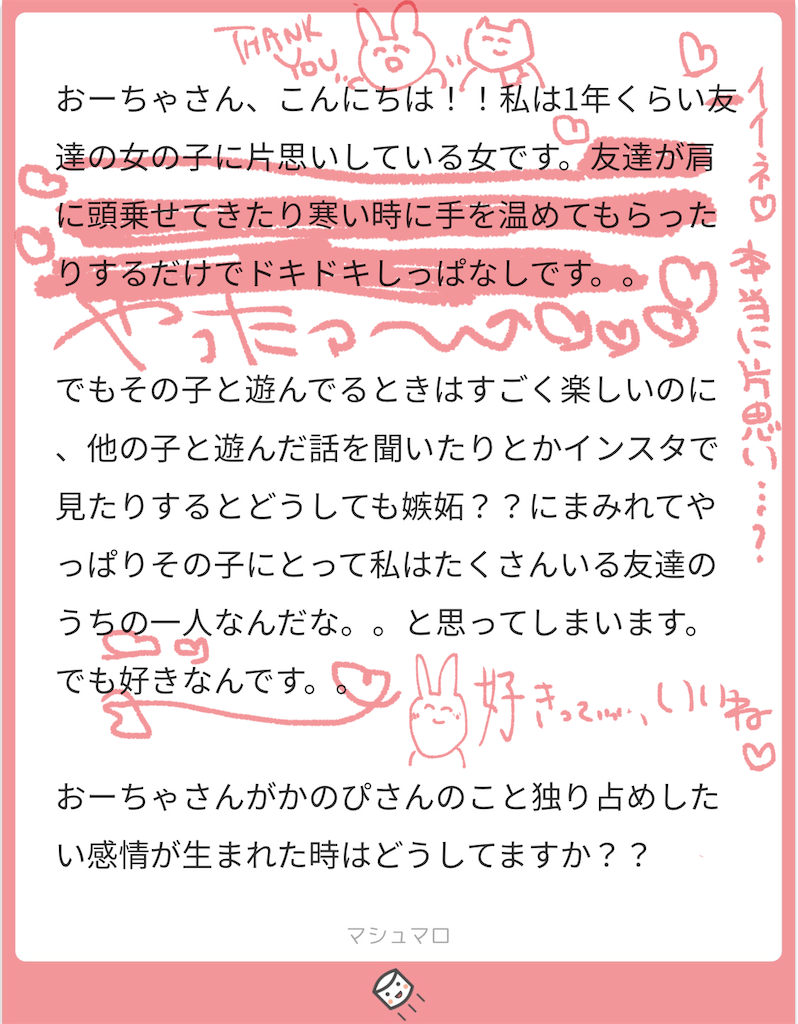 THANK
YOU
おーちゃさん、こんにちは！！私は1年くらい友
達の女の子に片思いしている女です。友達が肩
に頭乗せてきたり寒い時に手を温めてもらった
りするだけでドキドキしっぱなしです。。
イイネ♡
本当に片思い…?
やったっ〜
でもその子と遊んでるときはすごく楽しいのに
、他の子と遊んだ話を聞いたりとかインスタで
見たりするとどうしても嫉妬？？にまみれてや
っぱりその子にとって私はたくさんいる友達の
うちの一人なんだな。。と思ってしまいます。
でも好きなんです。。
好きって いいね
おーちゃさんがかのぴさんのこと独り占めした
い感情が生まれた時はどうしてますか？？
マシュマロ